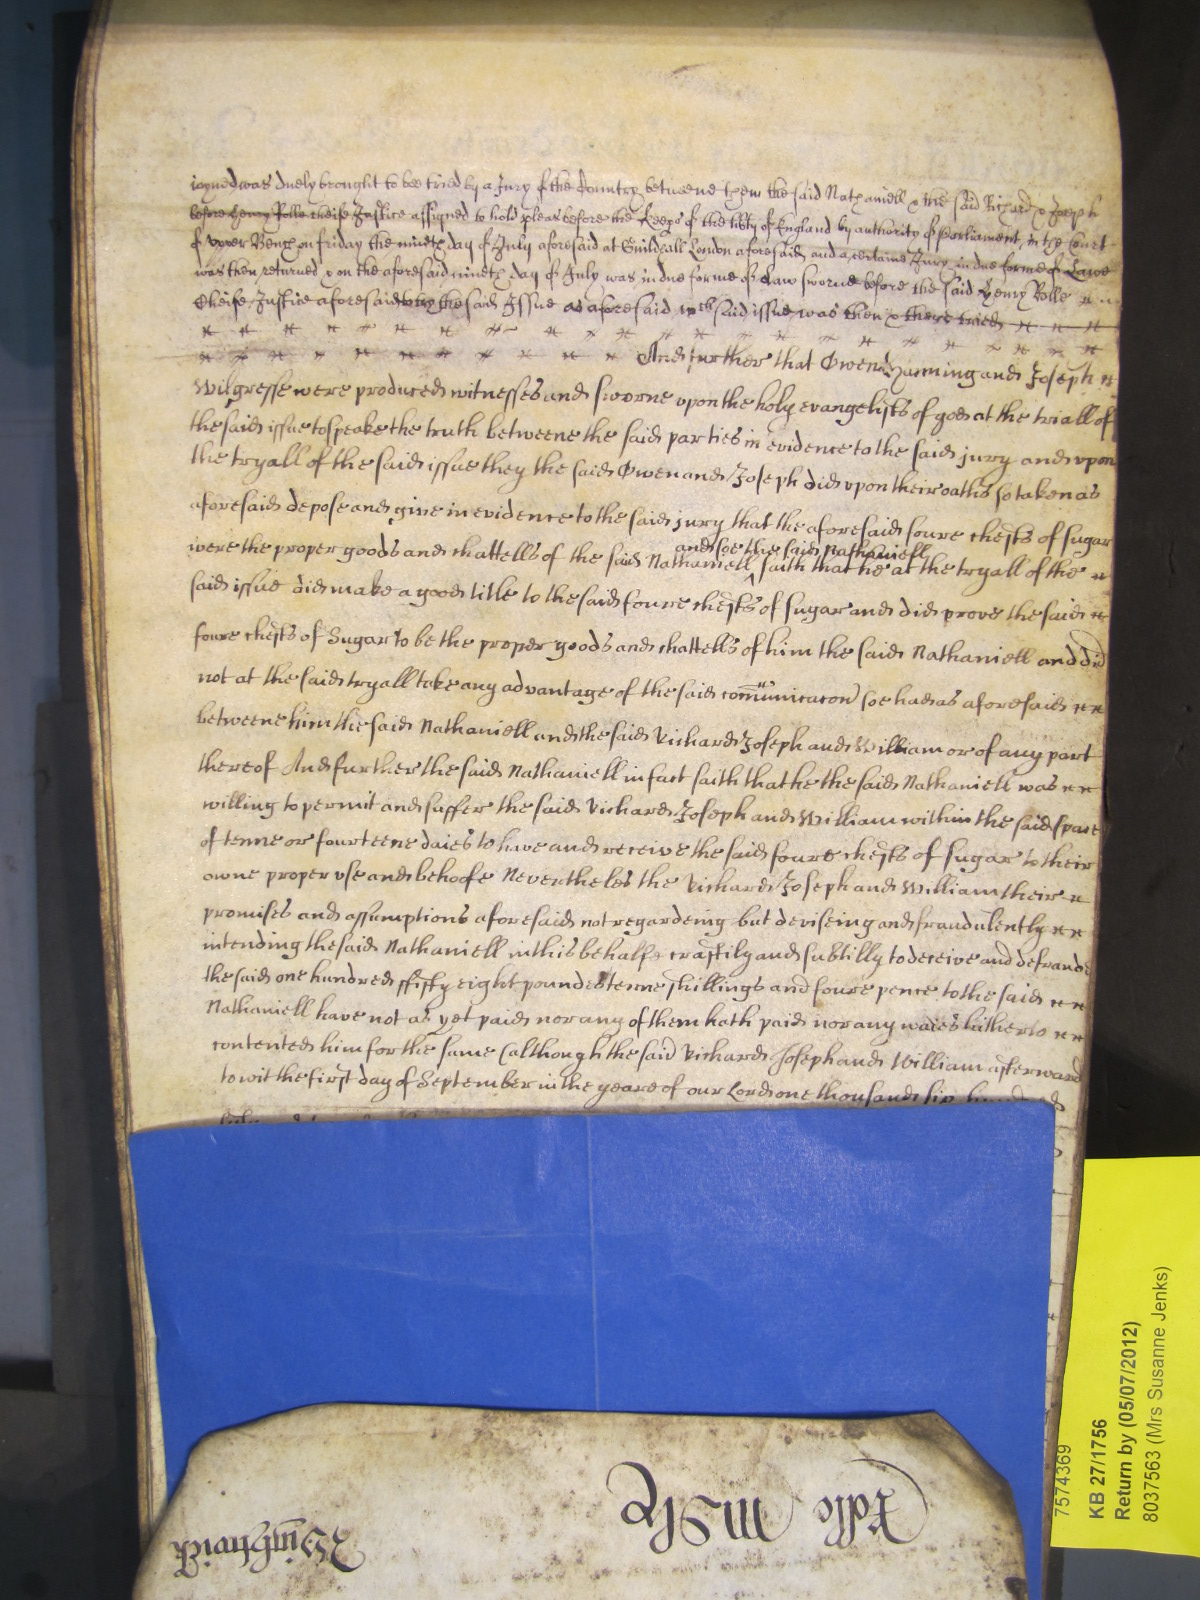 ioyned was duely brought to bee tried by a Jury of the Country betweene them the said Nathaniell & the said Richard & Joseph
before Henry Rolle cheife Justice assigned to hold pleas before the Keeps of the libty of England by authority of Parliament, in the Court
of upper Bench on friday the nineth day of July aforesaid at Guildhall London aforesaid and a certaine Jury in due forme of Lawe
was then returned & on the aforesaid nineth day of July was in due forme of Law sworne before the said Henry Rolle
Cheife Justice aforesaid to try the said Issue as aforesaid wch said issue was then & there tried
And further that Owen Hanning and Joseph
Wilgresse were produced witnesses and sworne upon the holy evangelists of god at the triall of
the said issue to speake the truth betweene the said parties in evidence to the said jury and upon
the tryall of the said issue they the said Owen and Joseph did upon their oathes so taken as
aforesaid depose and give in evidence to the said jury that the aforesaid foure chests of sugar
and soe the said Nathaniell
were the proper goods and chattells of the said Nathaniell saith that he at the tryall of the
said issue did make a good title to the said foure chests of sugar and did prove the said
foure chests of Sugar to be the proper goods and chattells of him the said Nathaniell and did
not at the said tryall take any advantage of the said comunicacon soe had as aforesaid
betweene him the said Nathaniell and the said Richard Joseph and William or of any part
thereof And further the said Nathaniell in fact saith that he the said Nathaniell was
willing to permit and suffer the said Richard Joseph and William within the said space
of tenne or fourteene daies to have and receive the said foure chests of sugar to their
owne proper use and behoofe Nevertheles the Richard Joseph and William their
promises and assumptions aforesaid not regardeing but deviseing and fraudulently
intending the said Nathaniell in this behalfe craftily and subtilly to deceive and defraude
the said one hundred fifty eight poundes tenne shillings and foure pence to the said
Nathaniell have not as yet paid nor any of them hath paid nor any waies hitherto
contented him for the same (although the said Richard Joseph and William afterward
to wit the first day of September in the yeare of our Lord one thousand six hundred
7574369
KB 27/1756
Return by (05/07/2012)
8037563 (Mrs Susanne Jenks)